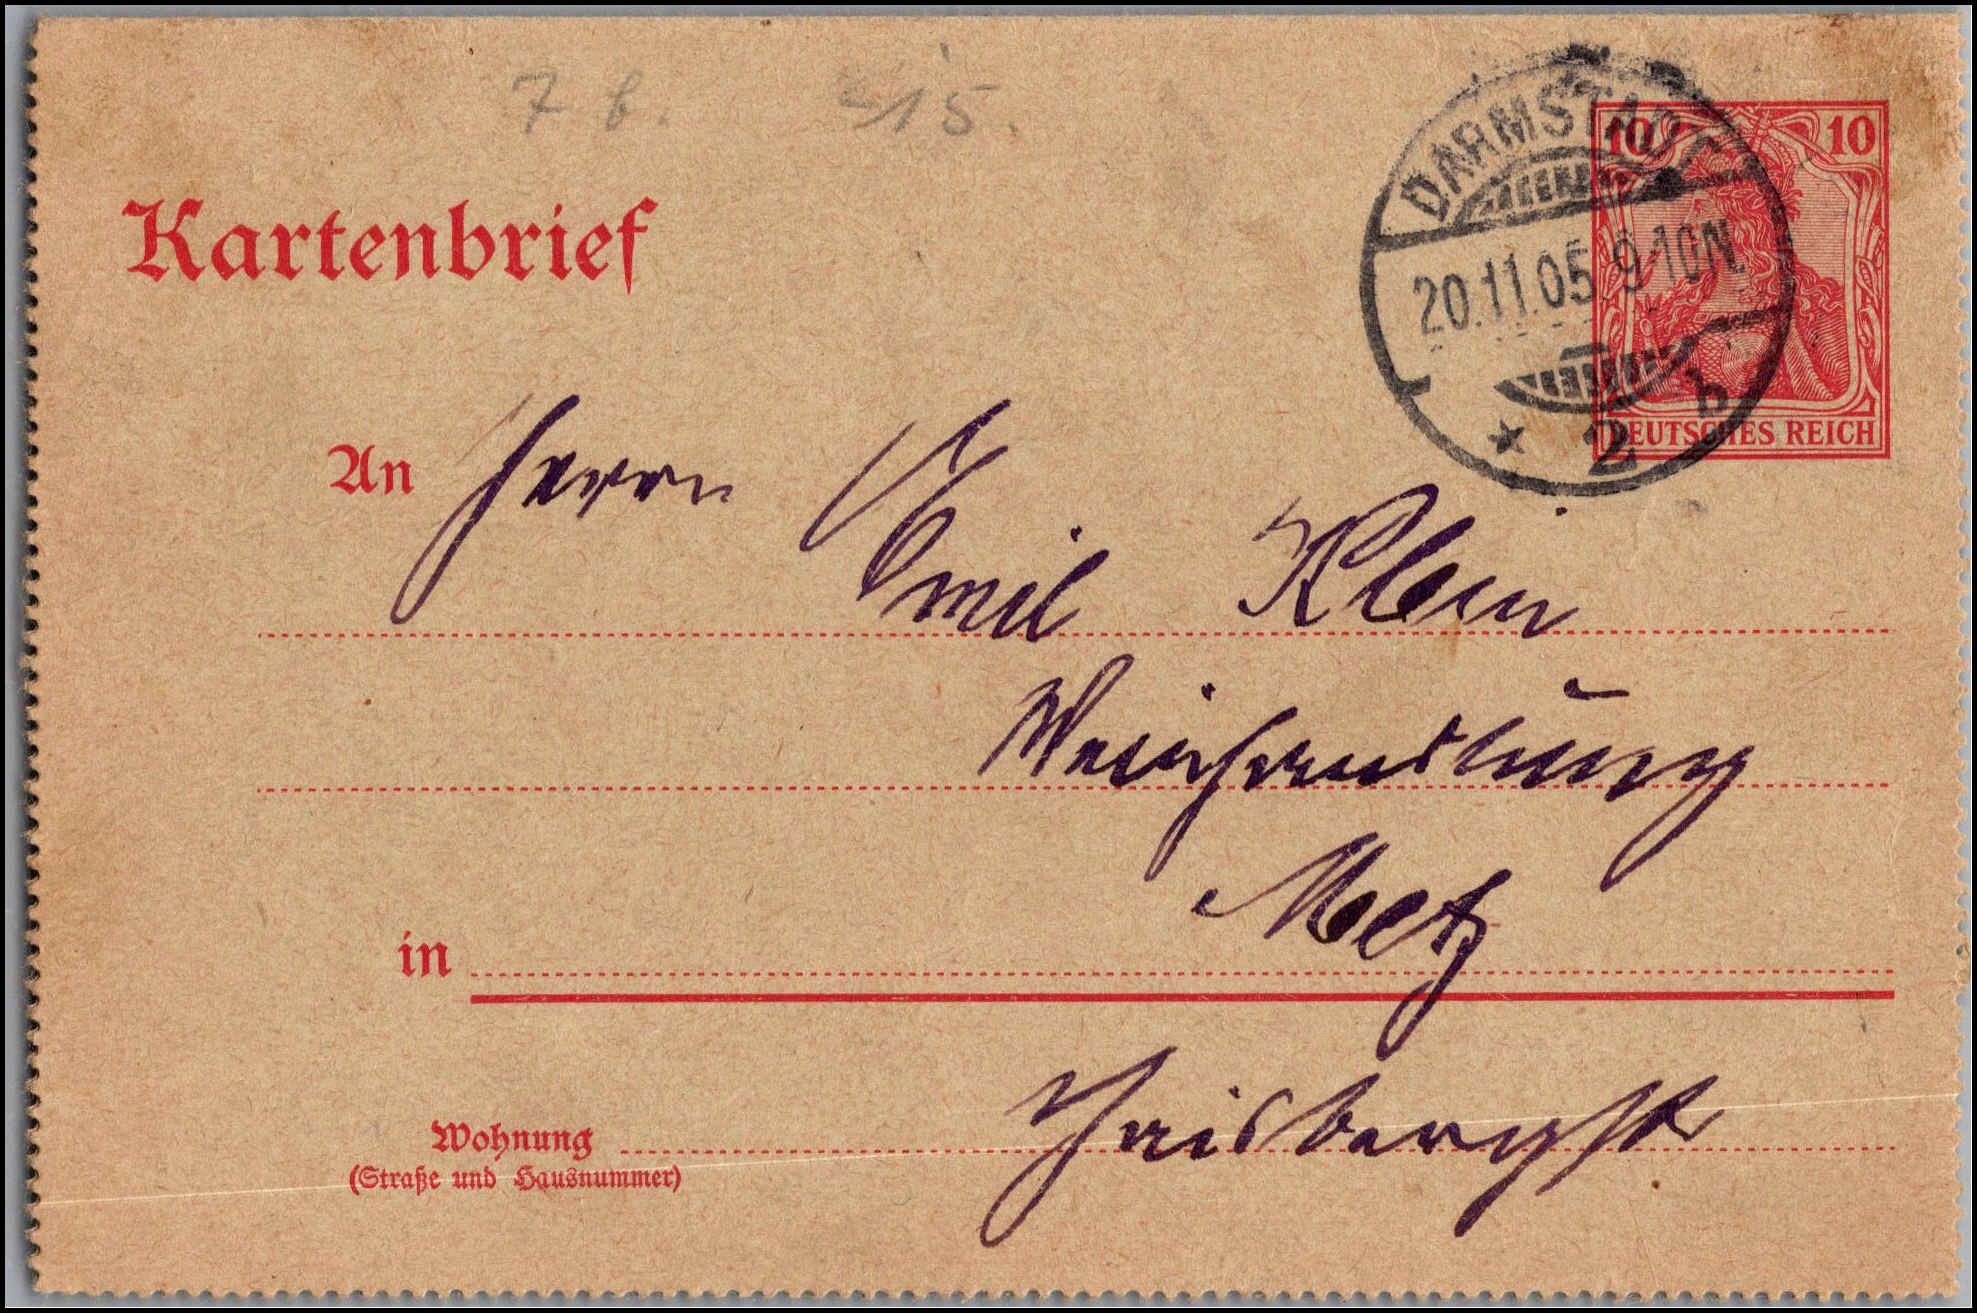 7 b. 15.
DARMSTADT
10 10
20.11.05. 9-10N.
* 2 b
DEUTSCHES REICH
Kartenbrief
An Herrn
Emil Klein
Weinhandlung
in Metz
Wohnung
(Straße und Hausnummer)